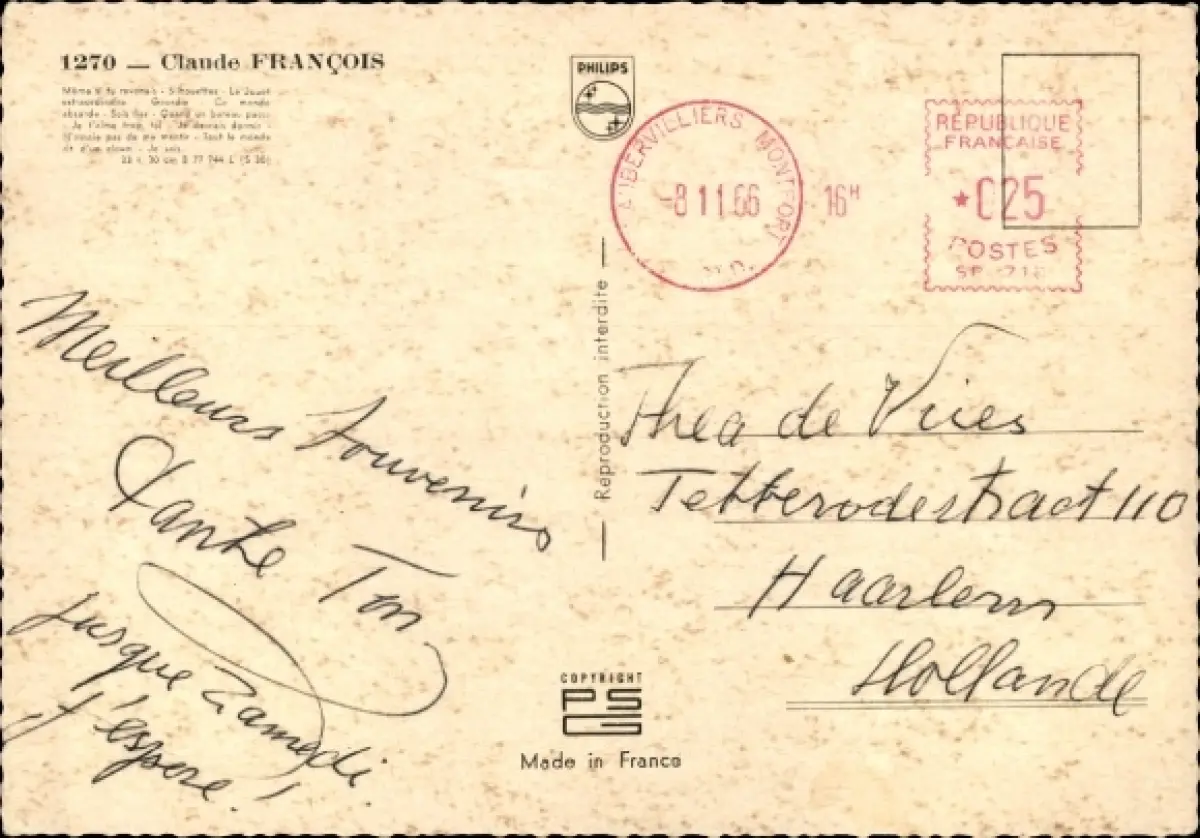 1270 — Claude FRANÇOIS
Même si tu revenais - Silhouettes - Le Jouet
extraordinaire - Geordie - Ce monde
absurde - Sois fier - Quand un bateau passe
- Je t'aime trop, toi - Je devrais dormir -
N'essaie pas de me mentir - Tout le monde
rit d'un clown - Je sais.
33 t. 30 cm B 77 744 L (S 30)
PHILIPS
AUBERVILLIERS MONTFORT
-8 11 66
16H
RÉPUBLIQUE
FRANÇAISE
★025
POSTES
Meilleurs Souvenirs
Tante Ton.
jusque Zamedi
j'espere!
Reproduction interdite
Thea de Vries
Tetterodestraat 110
Haarlem
Hollande
COPYRIGHT
PSG
Made in France